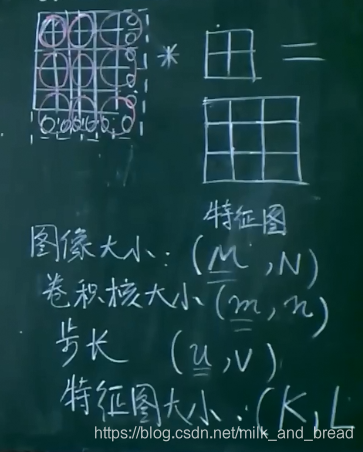 0
0
0
0 0 0 0 0 0
* =
特征图
图像大小: (M, N)
卷积核大小 (m, n)
步长 (u, v)
特征图大小: (K, L
https://blog.csdn.net/milk_and_bread